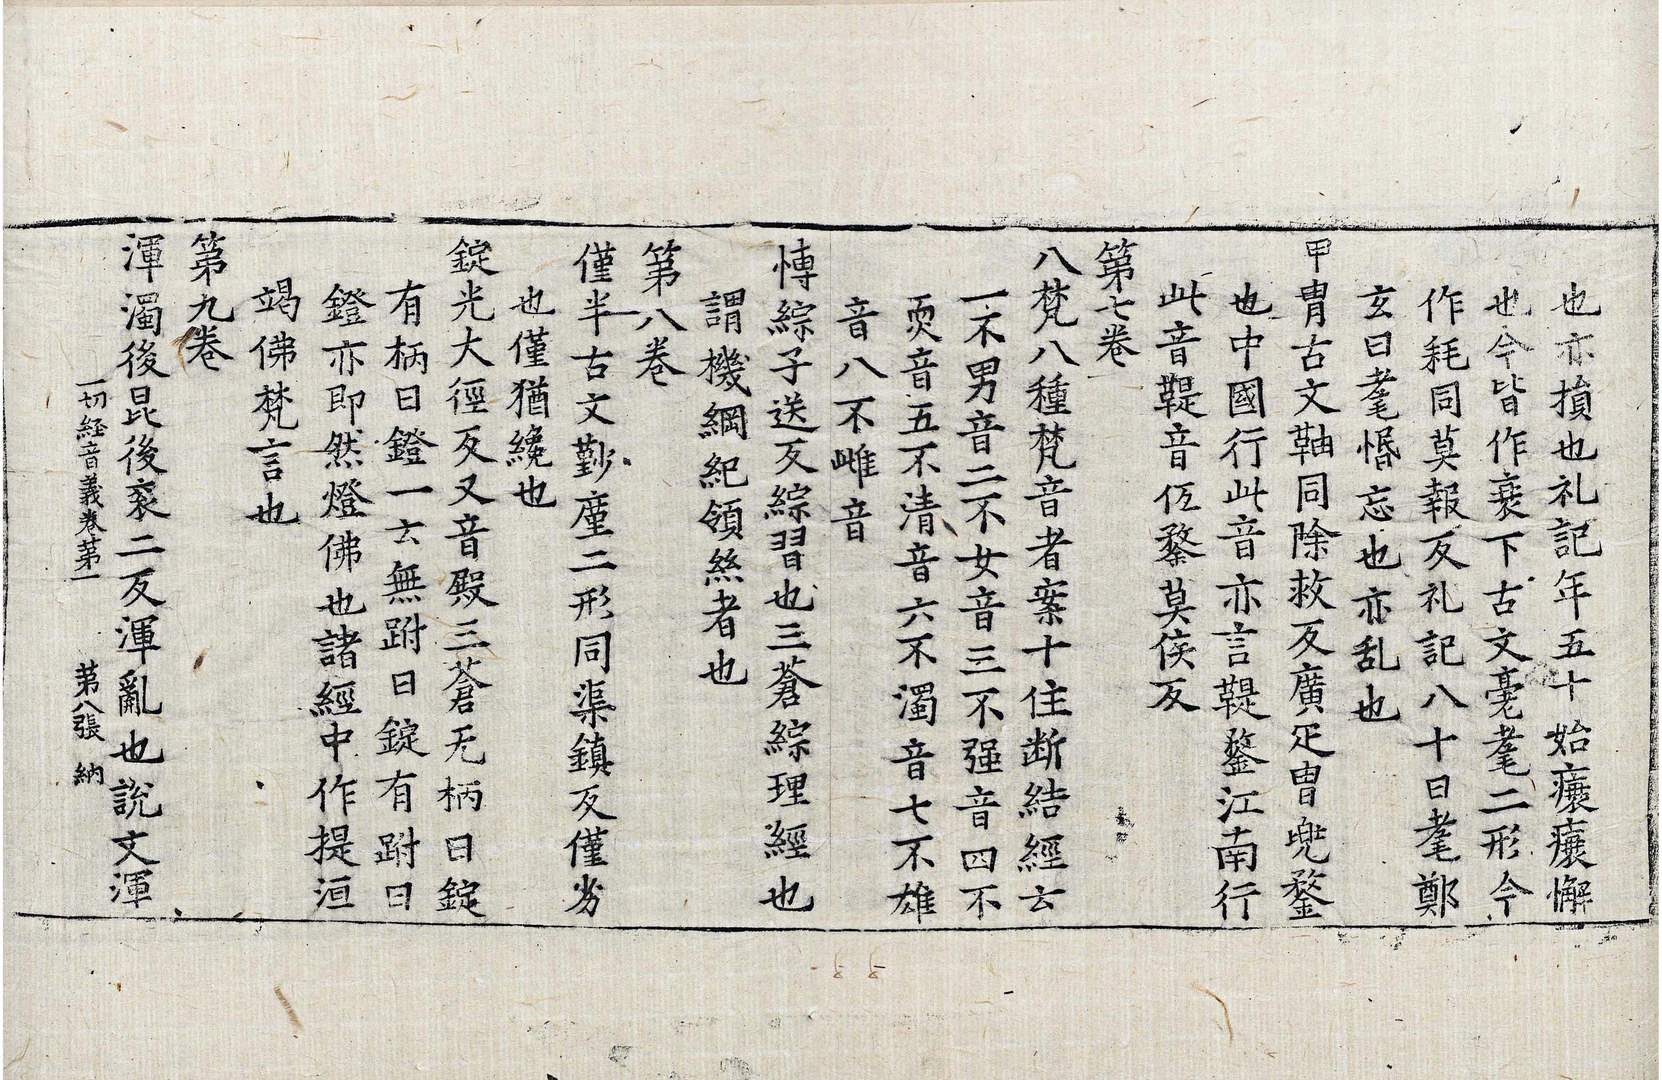 也亦損也礼記年五十始瘝瘝懈
也今皆作衰下古文薧耄二形今
作耗同莫報反礼記八十曰耄鄭
玄曰耄惛忘也亦乱也
甲冑古文䩜同除救反廣疋冑兜鍪
也中國行此音亦言鞮鍪江南行
此音鞮音低鍪莫侯反
第七卷
八梵八種梵音者案十住断結經云
一不男音二不女音三不强音四不
耎音五不清音六不濁音七不雄
音八不雌音
慱綜子送反綜習也三蒼綜理經也
謂機綱紀領絲者也
第八卷
僅半古文㔳廑二形同渠鎮反僅劣
也僅猶纔也
錠光大徑反又音殿三蒼无柄曰錠
有柄曰鐙一云無跗曰錠有跗曰
鐙亦即然燈佛也諸經中作提洹
竭佛梵言也
第九卷
渾濁後昆後衮二反渾亂也說文渾
一切経音義卷苐一 第八張 納